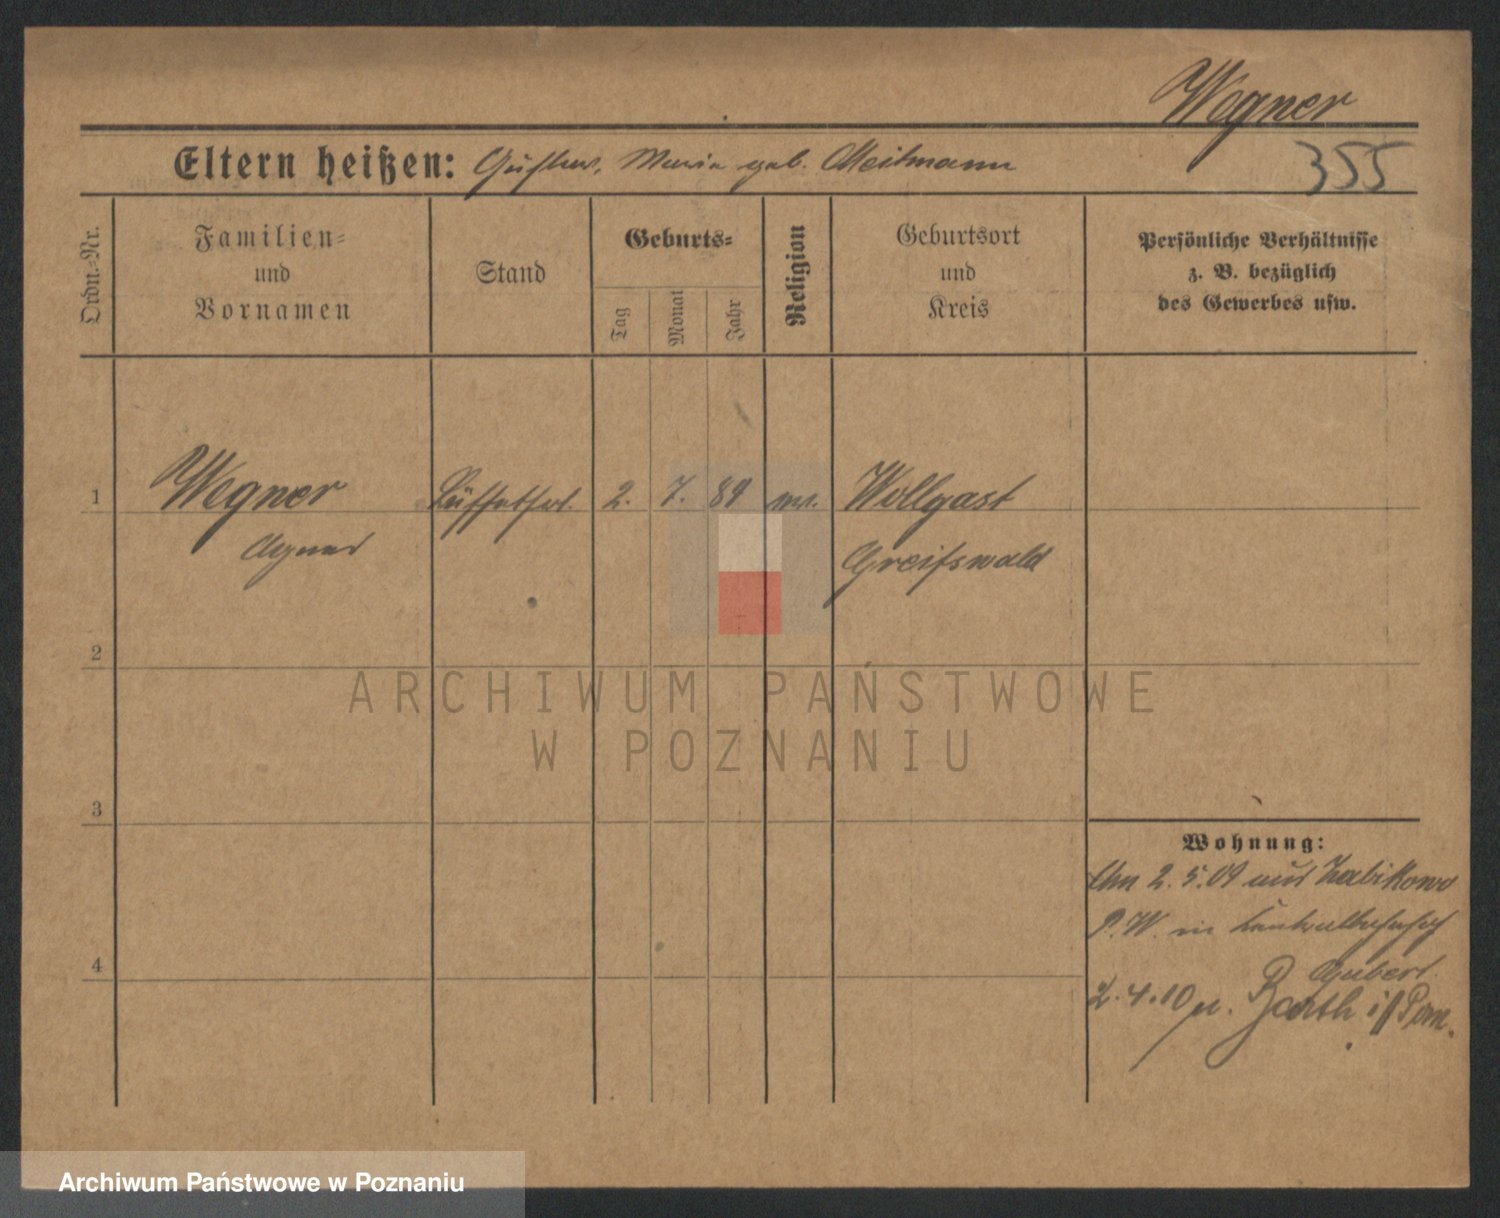 Wegner
Eltern heißen: Gustav, Maria geb. Meitmann
355
Ordn.-Nr.
Familien- und Vornamen
Stand
Geburts-
Tag
Monat
Jahr
Religion
Geburtsort und Kreis
Persönliche Verhältnisse
z. B. bezüglich
des Gewerbes usw.
1
Wegner
Büffetfrl.
2. 7. 89
Wollgast
Agnes
Greifswald
2
ARCHIWUM PAŃSTWOWE
W POZNANIU
3
Wohnung:
Am 2.5.09 aus Zabikowo
P.W. in
4
2.4.10 n. Barth i/Pom.
Archiwum Państwowe w Poznaniu